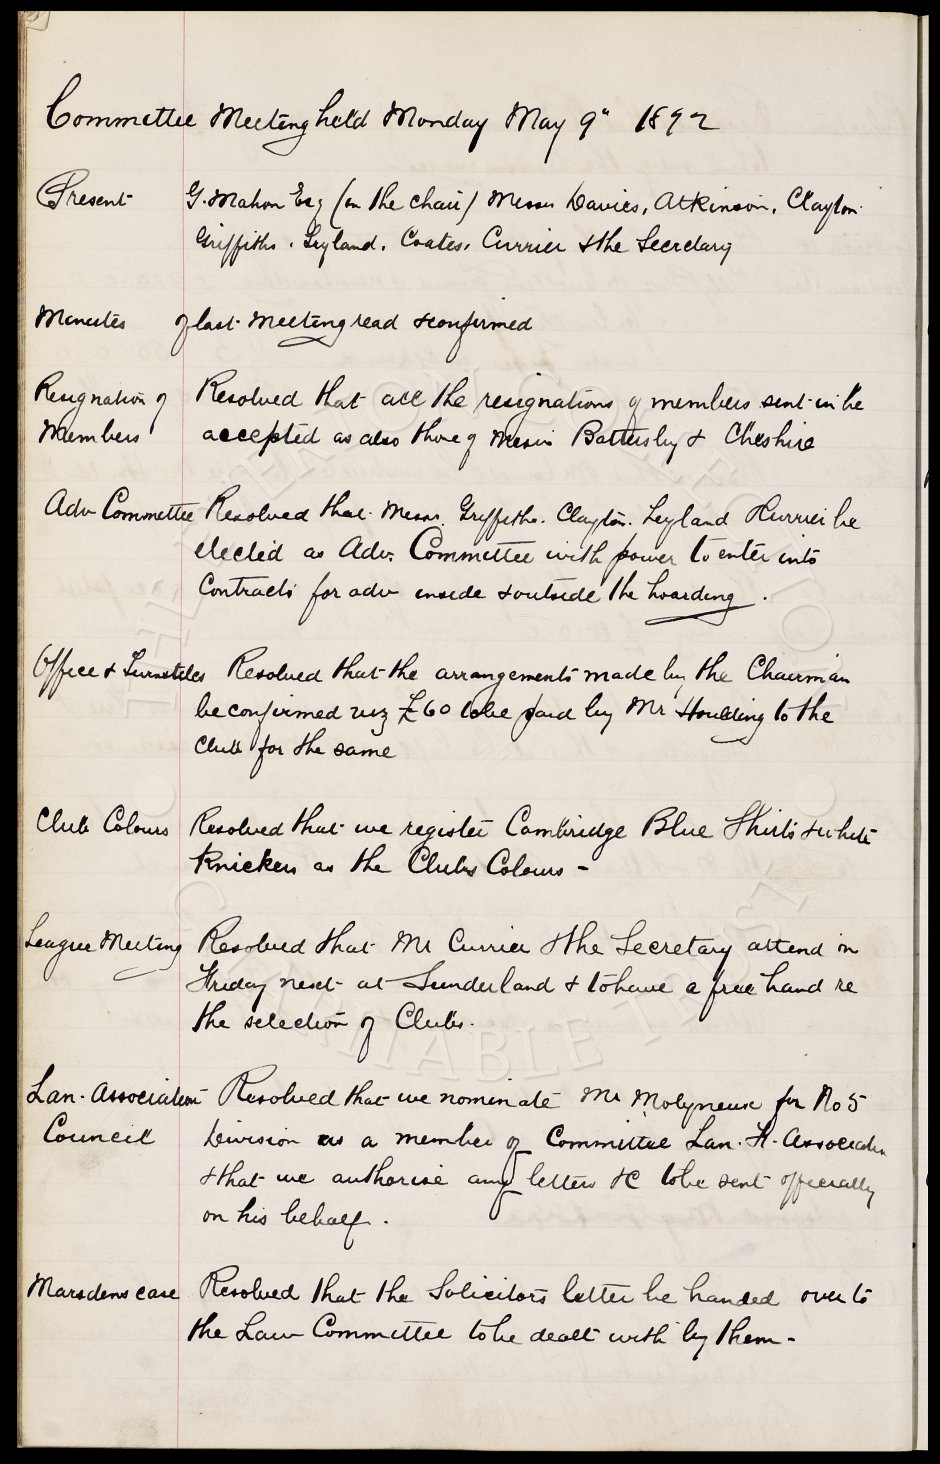 Committee Meeting held Monday May 9th 1892
Present G. Mahon Esq (in the chair) Messrs Davies, Atkinson, Clayton
Griffiths, Leyland, Coates, Currier & the Secretary
Minutes of last meeting read & confirmed
Resignation of Members Resolved that all the resignations of members sent in be
accepted as also those of Messrs Battersby & Cheshire
Adv Committee Resolved that Messrs. Griffiths. Clayton. Leyland & Currier be
elected as Adv. Committee with power to enter into
Contracts for adv inside & outside the hoarding.
Office & Turnstiles Resolved that the arrangements made by the Chairman
be confirmed viz £60 to be paid by Mr Houlding to the
Club for the same
Club Colours Resolved that we register Cambridge Blue Shirts & white
Knickers as the Clubs Colours -
League Meeting Resolved that Mr Currier & the Secretary attend on
Friday next at Sunderland & to have a free hand re
the selection of Clubs.
Lan. Association Council Resolved that we nominate Mr Molyneux for No 5
Division as a member of Committee Lan. F. Association
& that we authorise any letters &c to be sent officially
on his behalf.
Marsdens case Resolved that the Solicitors letter be handed over to
the Law Committee to be dealt with by them -
THE EVERTON COLLECTION CHARITABLE TRUST